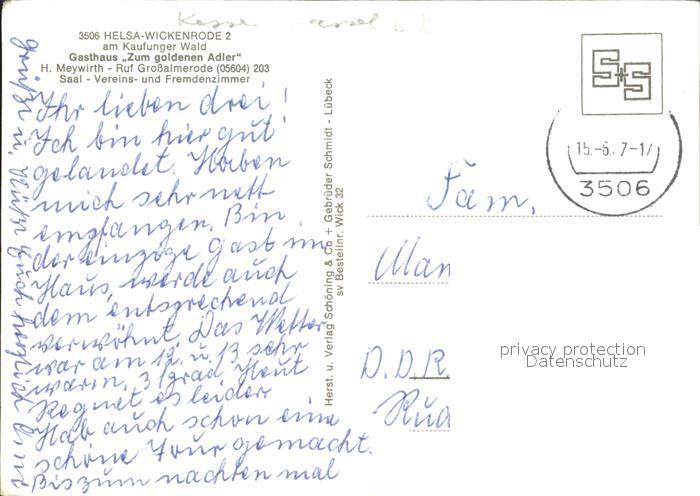 3506 HELSA-WICKENRODE 2
am Kaufunger Wald
Gasthaus „Zum goldenen Adler"
H. Meywirth - Ruf Großalmerode (05604) 203
Saal - Vereins- und Fremdenzimmer
Ihr lieben drei!
Ich bin hier gut
gelandet. Haben
mich sehr nett
empfangen. Bin
der einzige Gast im
Haus, werde auch
dem entsprechend
verwöhnt. Das Wetter
war am 12. u. 13 sehr
warm. 31 Grad. Heut
Regnet es leider
Hab auch schon eine
schöne Tour gemacht.
Bis zum nächsten mal
Grüße u. Küsse Euch herzlich
Herst. u. Verlag Schöning & Co + Gebrüder Schmidt - Lübeck
sv Bestellnr. Wick 32
S+S
15.-6. 7-17
3506
Fam.
Man
D.D.R.
Rud
privacy protection
Datenschutz